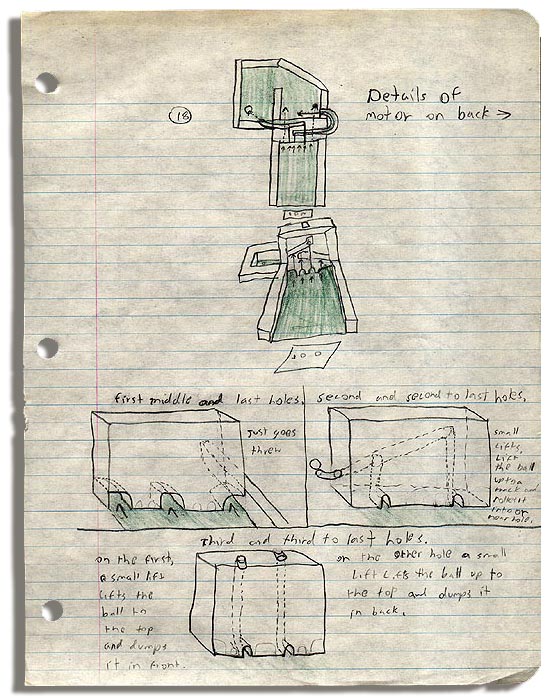 18
Details of
motor on back →
first middle and last holes.
second and second to last holes.
Just goes
threw
small
lifts
Lift
the ball
up to a
rolls it
into or
near hole.
Third and third to last holes.
on the first,
a small lift
lifts the
ball to
the top
and dumps
it in front.
on the other hole a small
Lift Lifts the ball up to
the top and dumps it
in back.